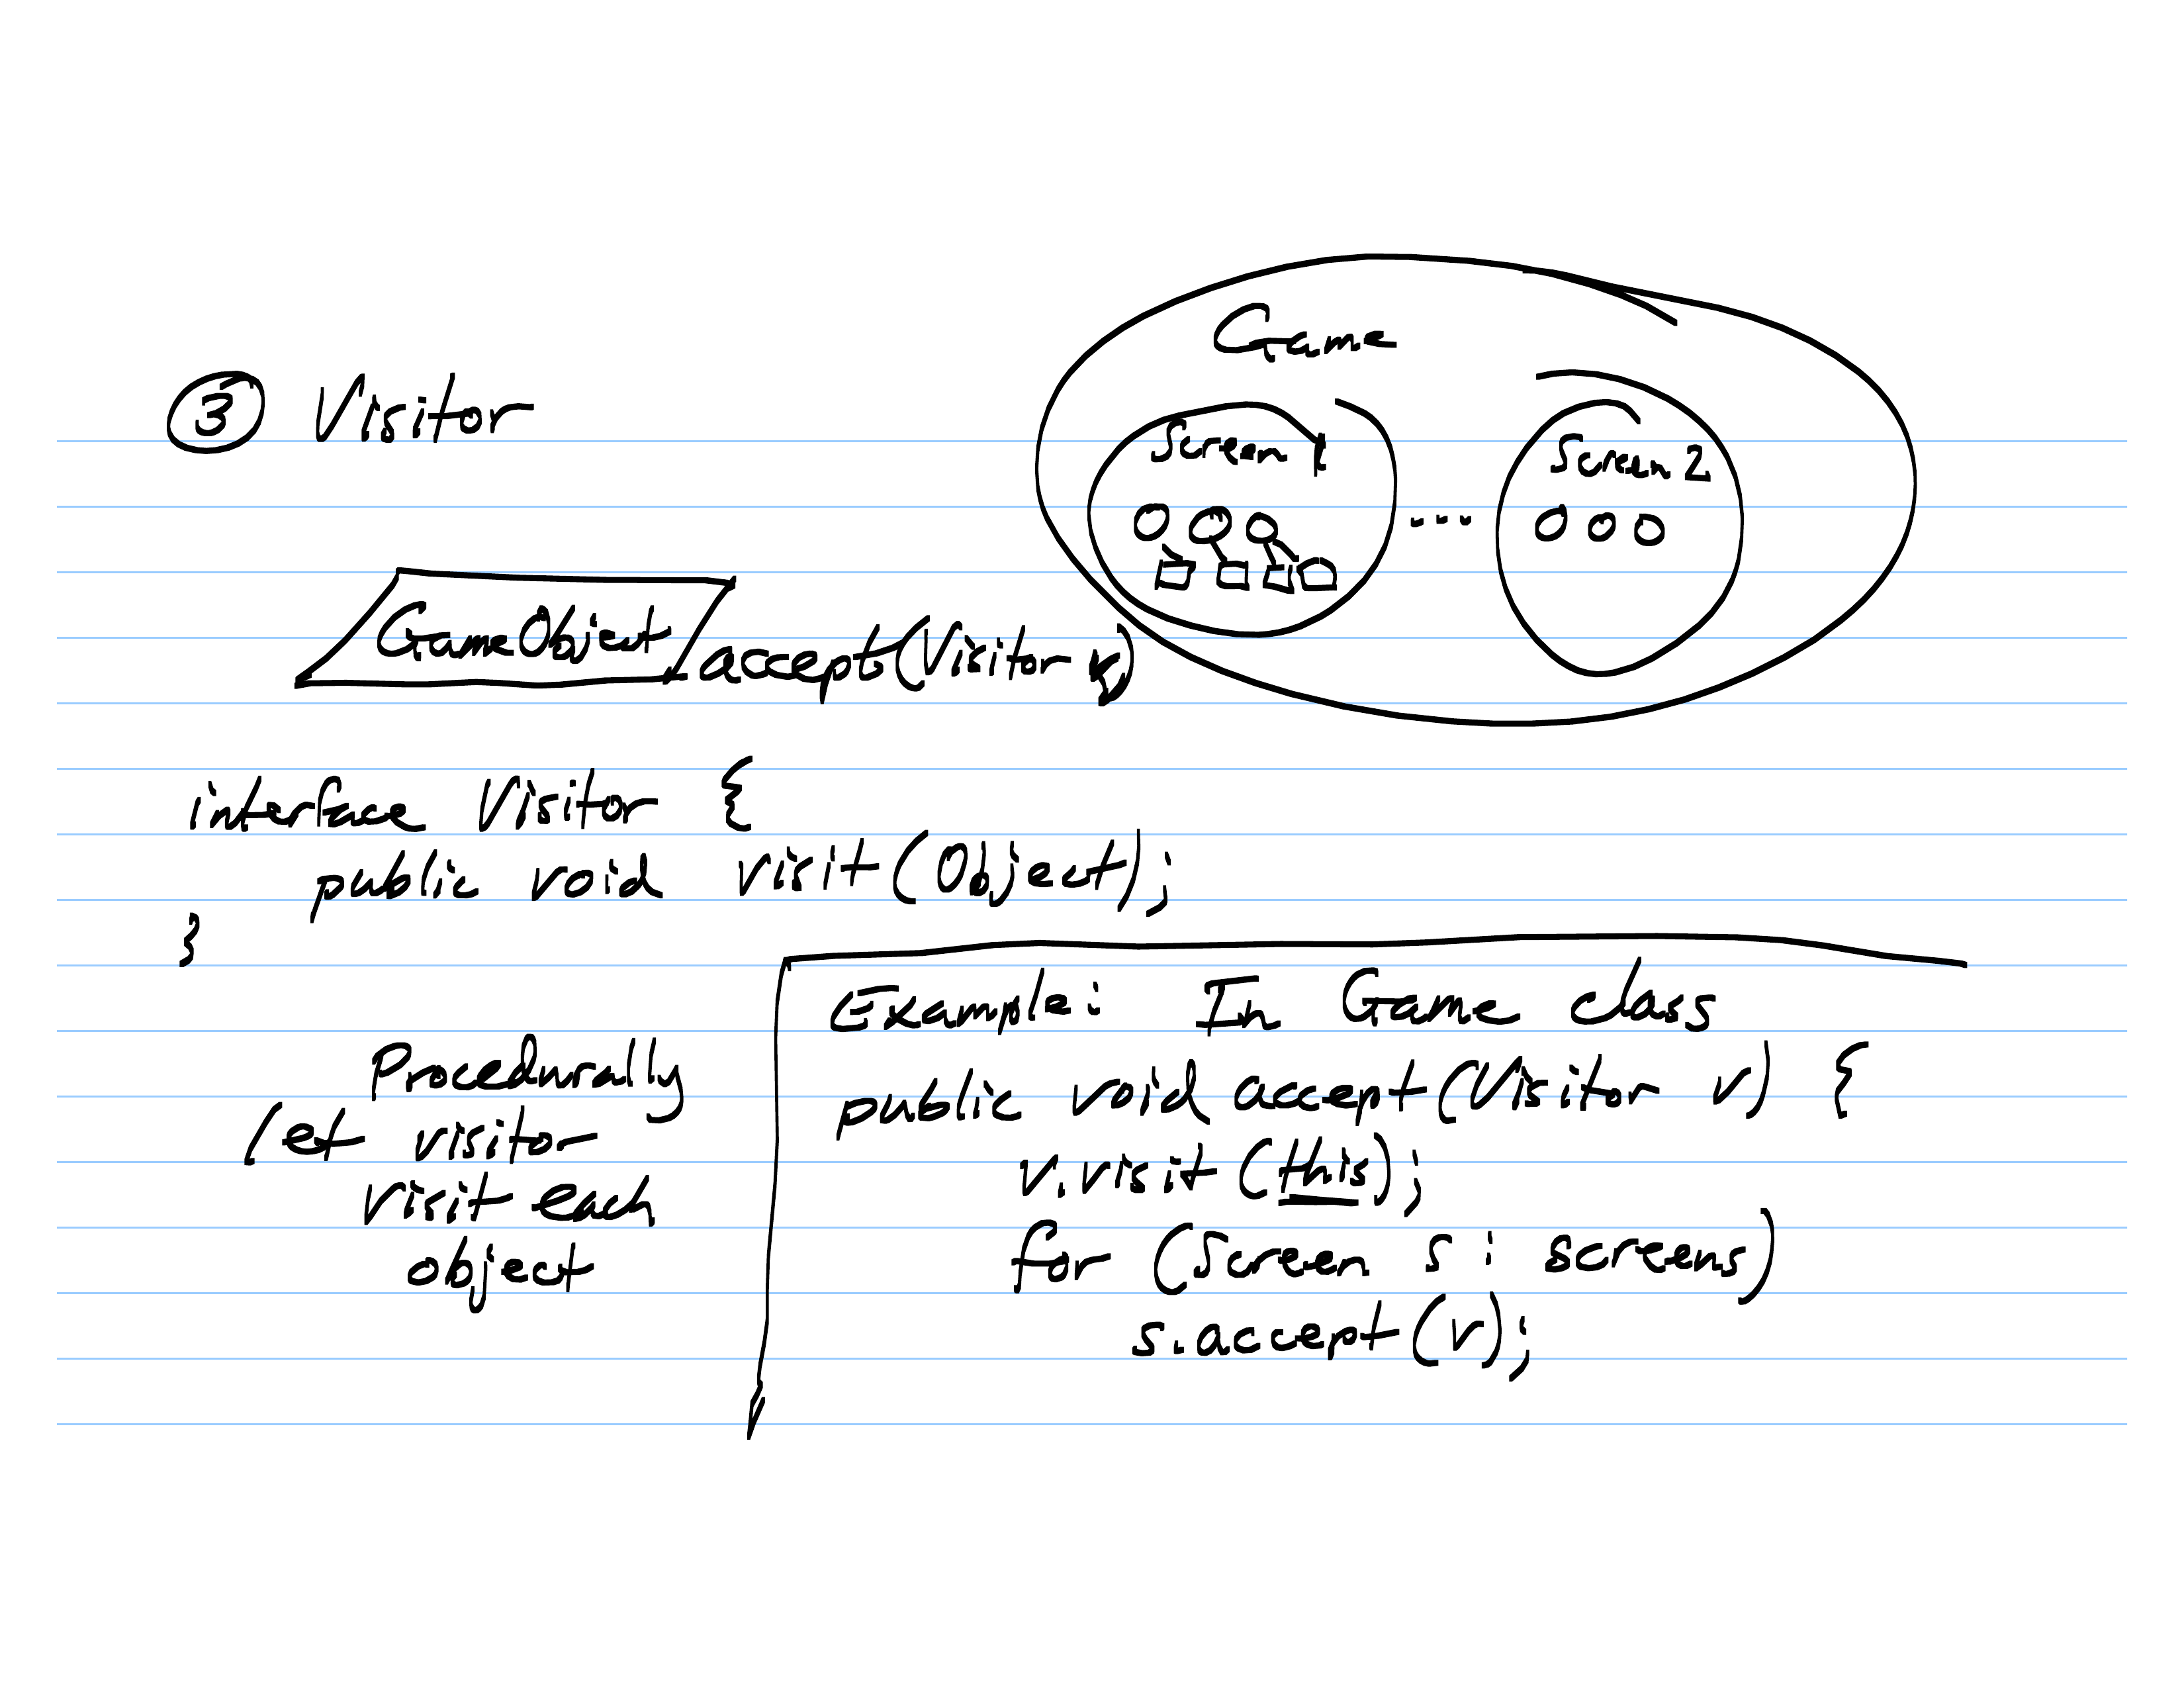 ③ Visitor
Game
Screen 1
.... Screen 2
GameObject accept(Visitor v)
interface Visitor {
public void visit(Object);
}
Procedurally
let visitor
visit each
object
Example: In Game class
public void accept(Visitor v) {
v.visit(this);
for (Screen s : screens)
s.accept(v);